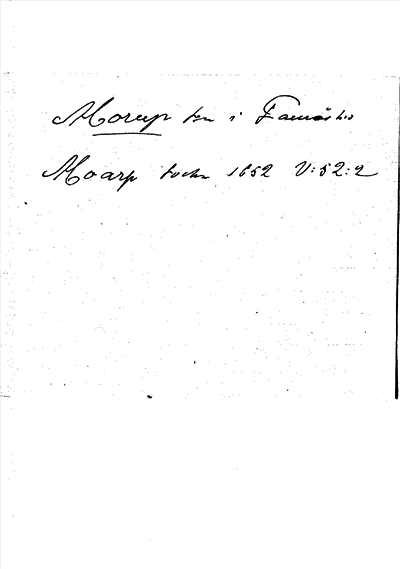 Morup sn i Faurås hd
Moarp sochn 1652 V:52:2